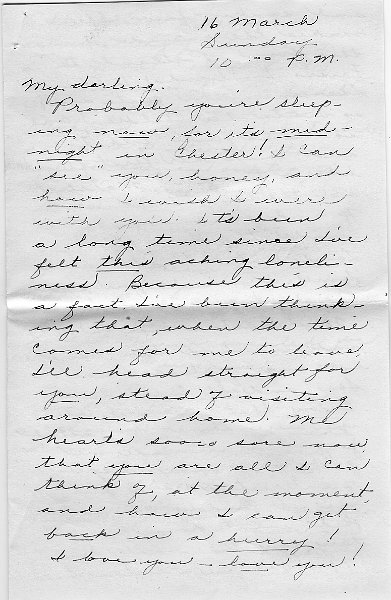 16 March
Sunday
10 00 P.M.
My darling.
Probably you're sleep-
ing now, for its mid-
night in Chester! I can
"see" you, honey, and
how I wish I were
with you. It's been
a long time since I've
felt this aching loneli-
ness. Because this is
a fact I've been think-
ing that, when the time
comes for me to leave,
I'll head straight for
you, stead of visiting
around home. Me
hearts sooo sore now
that you are all I can
think of, at the moment,
and how I can get
back in a hurry!
I love you - love you!